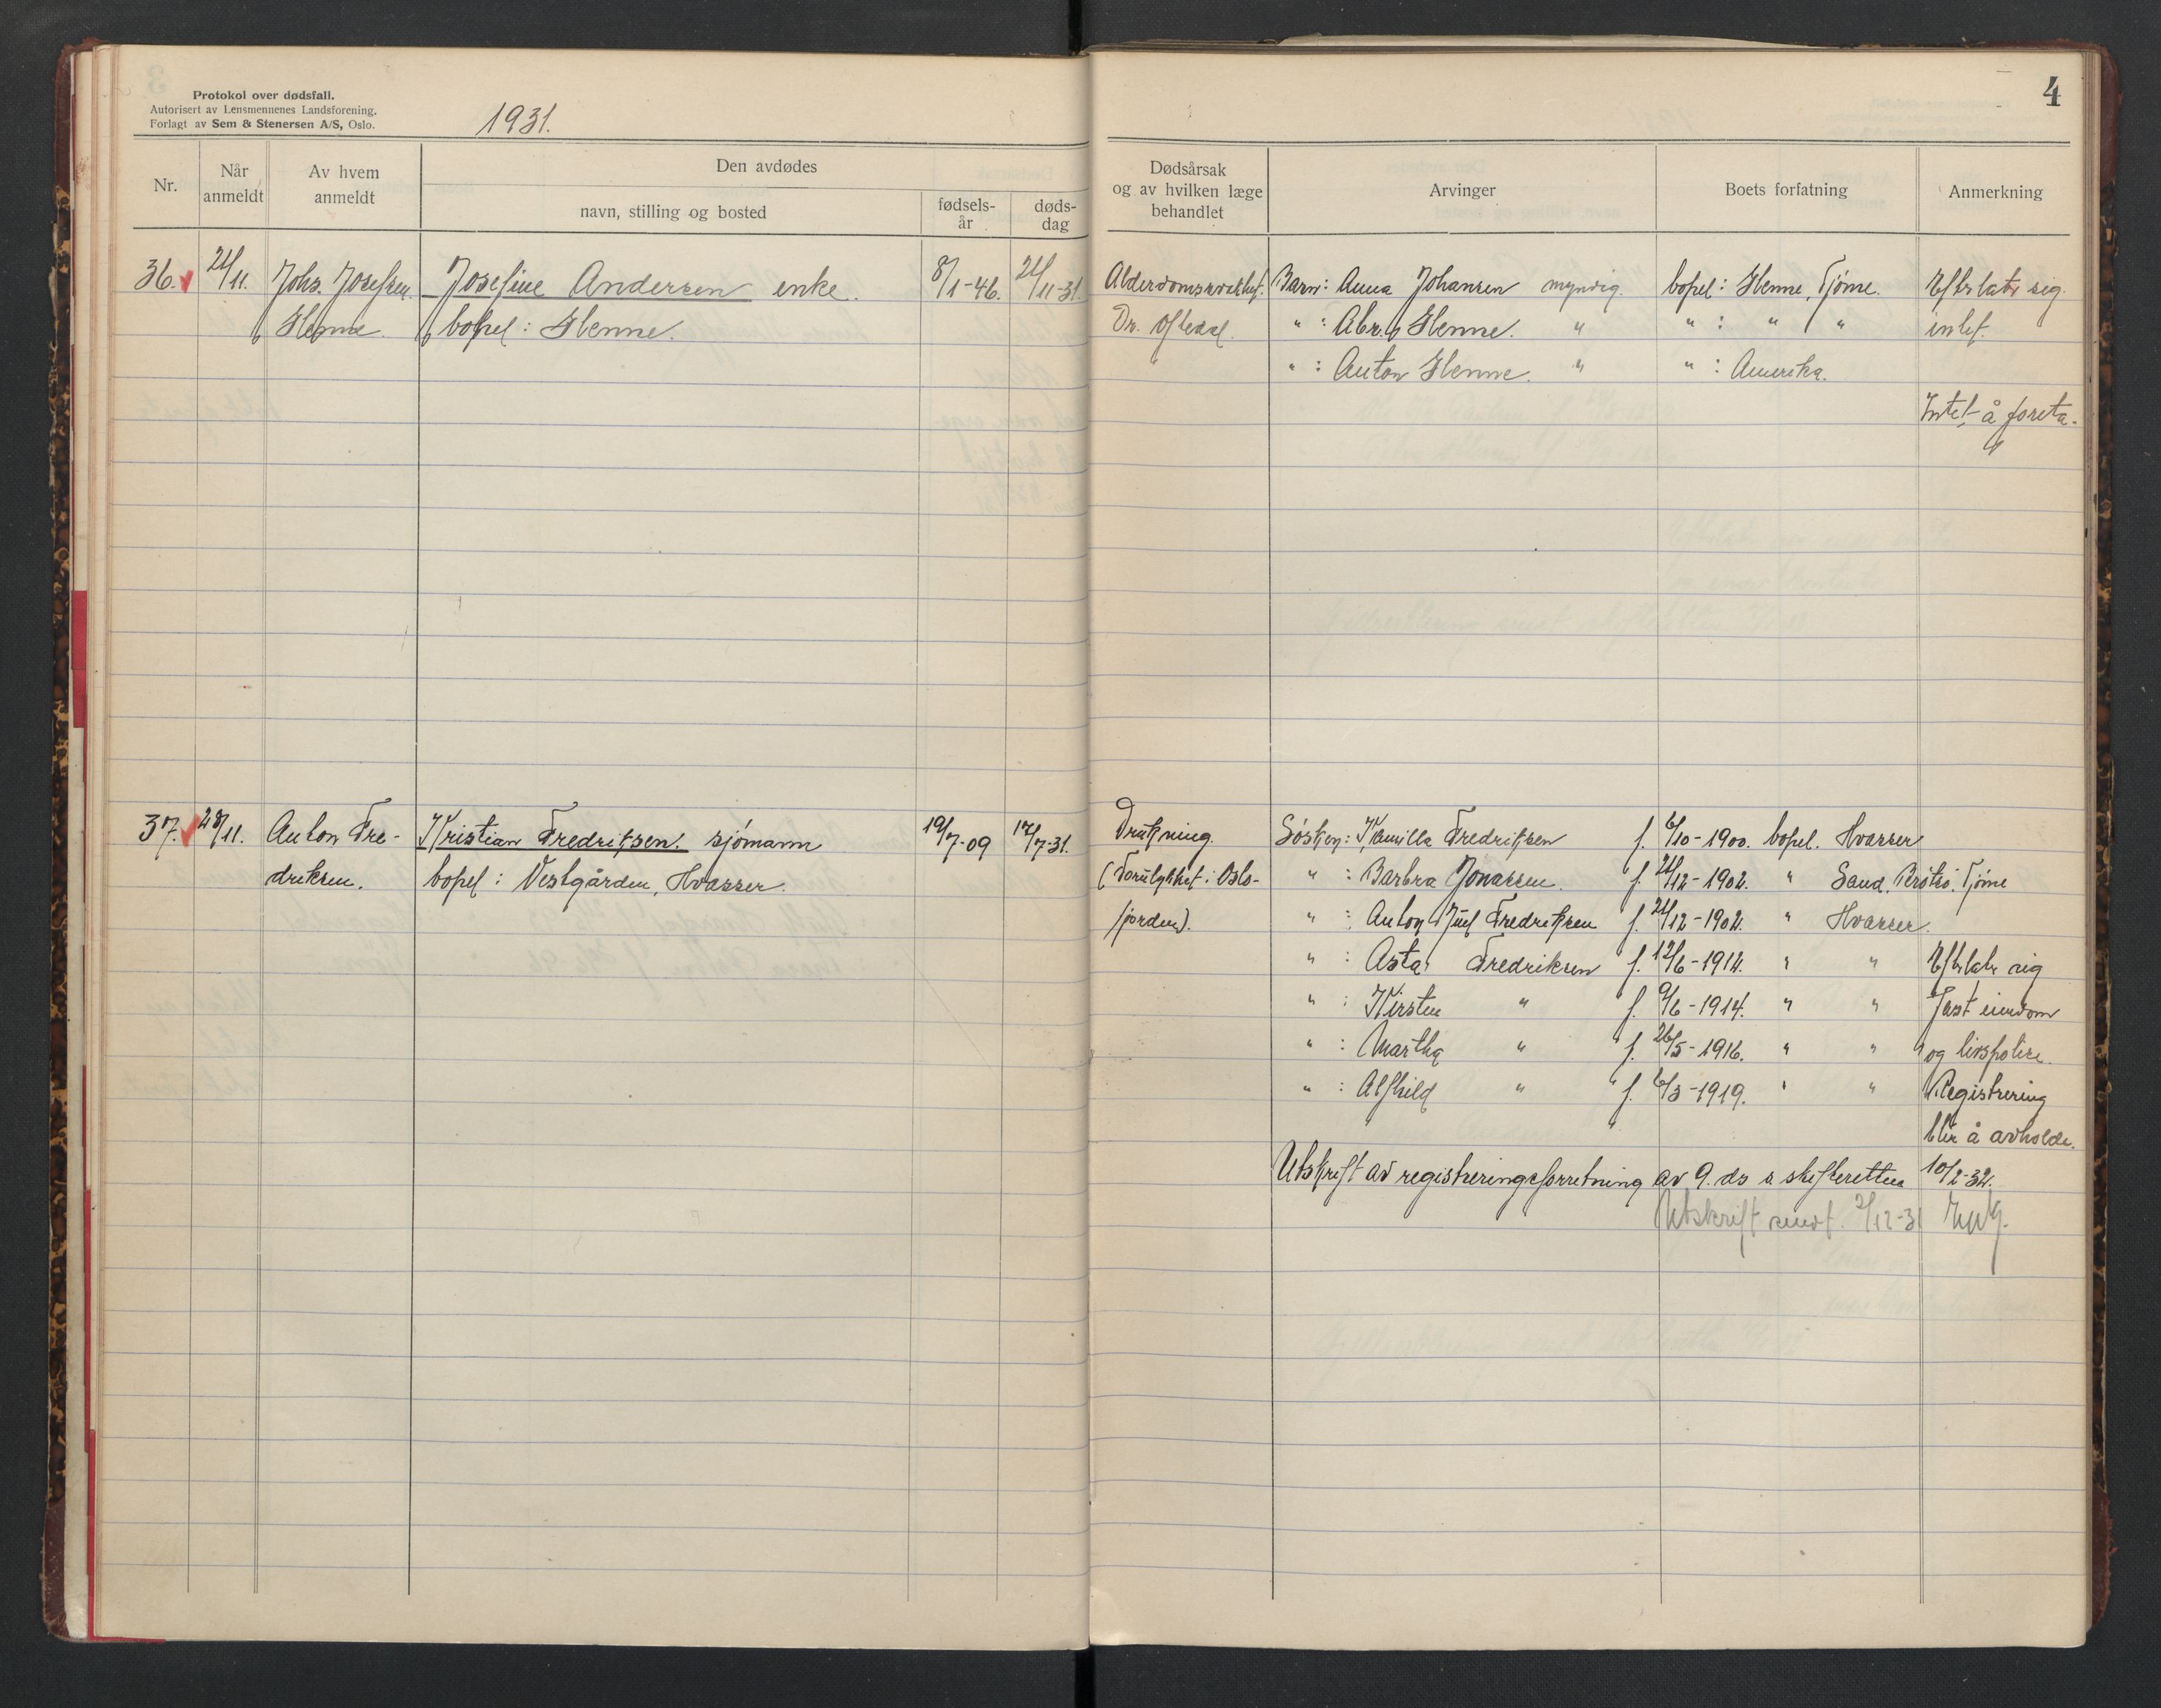 Protokol over dødsfall.
Autorisert av Lensmennenes Landsforening.
Forlagt av Sem & Stenersen A/S, Oslo.
1931.
4
Nr.
Når anmeldt
Av hvem anmeldt
Den avdødes
navn, stilling og bosted
fødsels-år
døds-dag
Dødsårsak og av hvilken læge behandlet
Arvinger
Boets forfatning
Anmerkning
36. 24/11. Johs. Josefsen Josefine Andersen enke. 8/1-46. 24/11-31. Alderdomssvakhet. Barn: Anna Johansen myndig. bopel: Glenne, Tjøme. Efterlater sig
Glenne. bopel: Glenne. Dr. Oftedal. " : Abr. Glenne. " " : " " intet.
" : Anton Glenne. " " : Amerika.
Intet å foreta.
37. 28/11. Anton Fre- Kristian Fredriksen. sjømann 19/7-09 12/7-31. Drukning. Søsken: Kamilla Fredriksen f. 6/10-1900. bopel. Hvasser
driksen. bopel: Vestgården, Hvasser. (Forulykket i Oslo- " : Barbra Jonassen. f. 24/12-1902. " Sand, Tjøme
fjorden). " : Anton Juel Fredriksen f. 24/12-1902. " Hvasser.
" : Asta Fredriksen f. 12/6-1912. " " Efterlater sig
" : Kirsten " f. 9/6-1914. " " fast eiendom
" : Martha " f. 26/5-1916. " " og livspolise.
" : Alfhild " f. 6/3-1919. " " Registrering
blir å avholde.
Utskrift av registreringsforretning av 9. ds s. skifteretten 10/2-32.
Utskrift sendt. 2/12-31